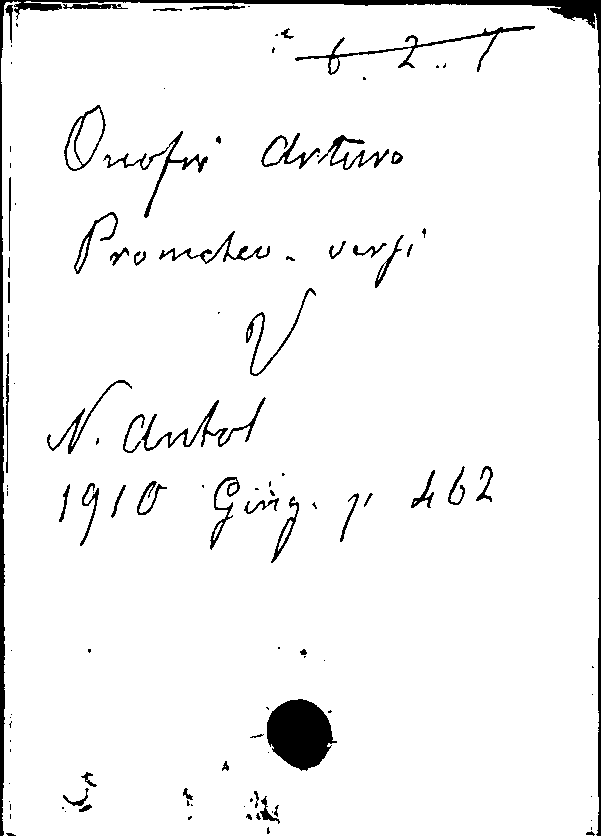 6. 2.. 7
Onofri Arturo
Prometeo - versi
V
N. Antol
1910 Giug. p 462